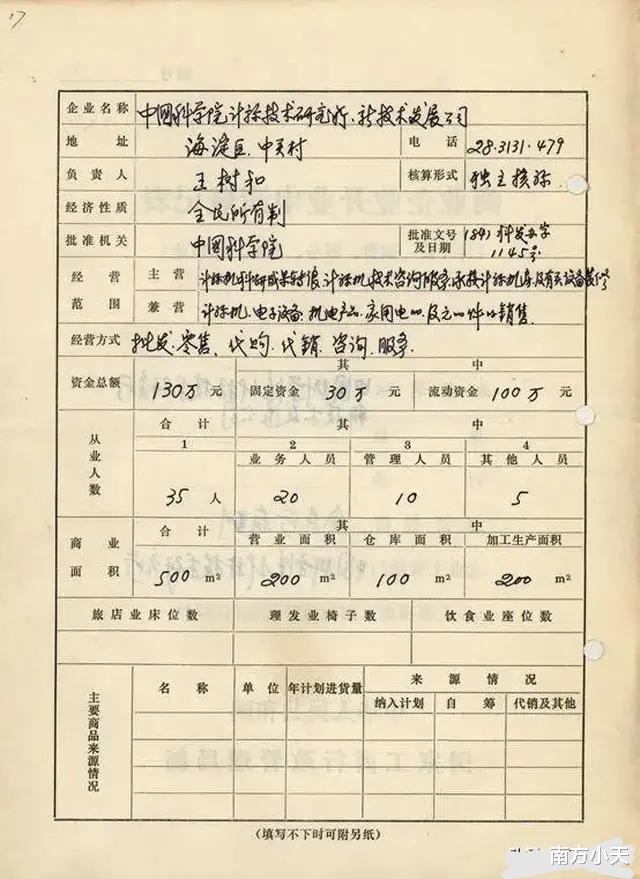 17
企业名称 中国科学院计祘技术研究所、新技术发展公司
地址 海淀区中关村 电话 28.3131.479
负责人 王树和 核算形式 独立核祘
经济性质 全民所有制
批准机关 中国科学院 批准文号及日期 (84)科发计字1145号
经营范围 主营 计祘机科研成果转让 计祘机技术咨询服务 承接计祘机房及有关设备装修
兼营 计祘机、电子设备、机电产品、家用电器及元件的销售.
经营方式 批发.零售.代购.代销.咨询.服务
资金总额 130万元 其中 固定资金 30万元 流动资金 100万元
从业人数 合计 其中
1 2 3 4
业务人员 管理人员 其他人员
35人 20 10 5
商业面积 合计 其中
营业面积 仓库面积 加工生产面积
500m² 200m² 100m² 200m²
旅店业床位数 理发业椅子数 饮食业座位数
主要商品来源情况 名称 单位 年计划进货量 来源情况
纳入计划 自筹 代销及其他
(填写不下时可附另纸)
南方小天